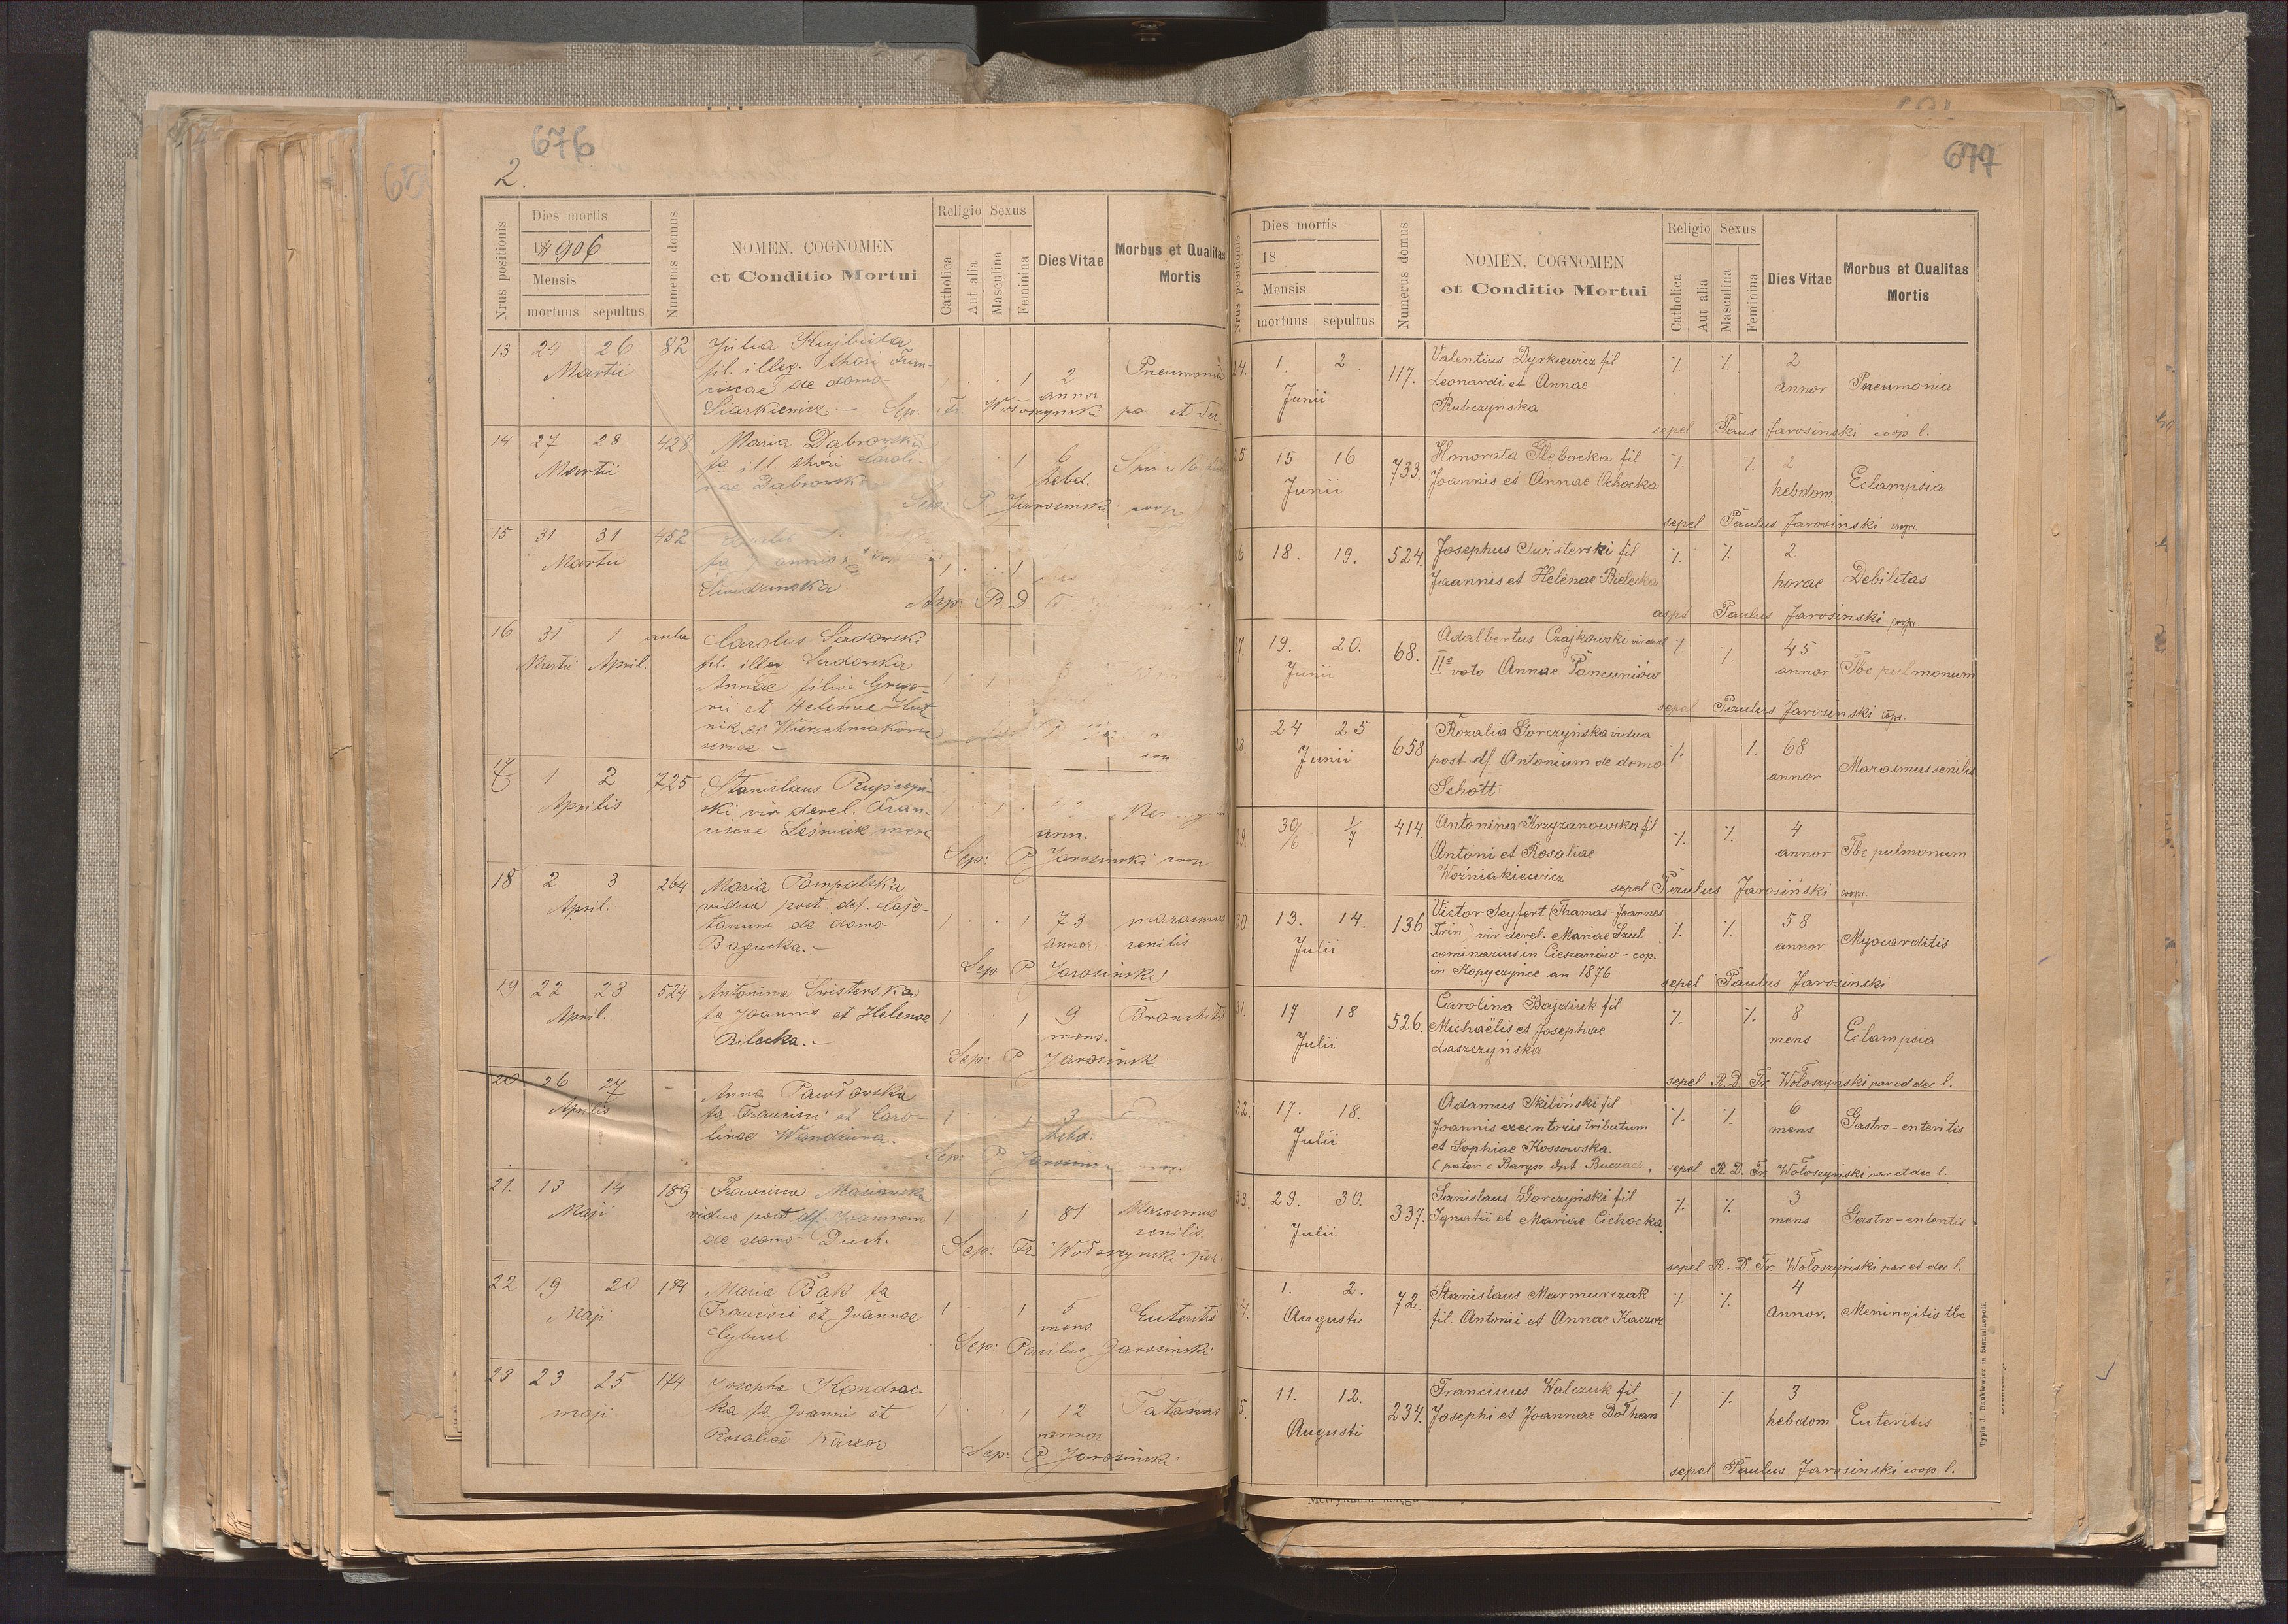 676
2.
Nrus positionis
Dies mortis
18906
Mensis
mortuus sepultus
Numerus domus
NOMEN, COGNOMEN
et Conditio Mortui
Religio
Catholica
Aut alia
Sexus
Masculina
Feminina
Dies Vitae
Morbus et Qualitas
Mortis
13 24 26 82 Julia Kujbida
Martii fil. illeg. thori Fran-
ciscae de domo 1 1 2 Pneumonia
Siarkiewicz – annor
Sep: Fr. Wołoszynski pa et dec.
14 27 28 428 Maria Dabrowska
Martii fa ill. thori Caroli- 1 1 6
nae Dabrowska hebd.
Sep: P. Jarosinski coop
15 31 31 452
Martii fa annis
Swidzinska. 1 1
Asp: R. D.
16 31 1 Carolus Sadowski
Martii April. fil. illeg. Sadowska
Annae filiae Grego-
rii et Helenae Hut
nik ex Wierzchniakowce
servae. –
17 1 2 725 Stanislaus
Aprilis ski vir derel. Fran-
ciscae Leśniak ann.
Sep: P. Jarosinski coop
18 2 3 264 Maria Pampalska
April. vidua post. def. Caje-
tanum de domo 1 1 73 marasmus
Bagucka. – annor. senilis
Sep P. Jarosinski
19 22 23 524 Antonina Swisterska
April. fa Joannis et Helenae 1 1 9 Bronchitis
Bilecka. – mens.
Sep: P. Jarosinski
20 26 27 – Anna Pawłowska
Aprilis fa Francisci et Caro- 1 1 3
linae Wandiura. hebd.
Sep: P. Jarosinski coop.
21. 13 14 189 Francisca Masiowska
Maji vidua post. df. Joannem 1 1 81 Marasmus
de domo Duch. senilis.
Sep: Fr. Wołoszynski par
22 19 20 184 Maria Bąk fa
Maji Francisci et Joannae 1 1 5 Enteritis
Cybuch mens.
Sep: Paulus Jarosinski
23 23 25 174 Josepha Kondrac-
maji ka fa Joannis et 1 1 12 Tatanus
Rosaliae Kaczor annor
Sep: P. Jarosinski
677
Nrus positionis
Dies mortis
18
Mensis
mortuus sepultus
Numerus domus
NOMEN, COGNOMEN
et Conditio Mortui
Religio
Catholica
Aut alia
Sexus
Masculina
Feminina
Dies Vitae
Morbus et Qualitas
Mortis
24. 1. 2. 117. Valentius Dyrkiewicz fil
Junii Leonardi et Annae 2 annor Pneumonia
Rubczyńska
sepel Paus Jarosinski coop l.
25 15 16 733. Honorata Głębocka fil
Junii Joannis et Annae Cichocka 2 hebdom. Eclampsia
sepel Paulus Jarosinski coopr.
26 18. 19. 524. Josephus Swisterski fil
Joannis et Helenae Bielecka 2 horae Debilitas
asps Paulus Jarosinski coopr.
27. 19. 20. 68. Adalbertus Czajkowski vir derel
Junii IIo voto Annae Pancuniów 45 annor Tbc pulmonum
sepel Paulus Jarosinski copr.
28. 24 25 658 Rozalia Gorczyńska vidua
Junii post df Antonium de domo 1. 68 annor Marasmus senilis
Schott
29. 30/6 1/7 414. Antonina Krzyżanowska fil
Antoni et Rosaliae 4 annor Tbc pulmonum
Woźniakiewicz
sepel Paulus Jarosiński coopr.
30 13. 14. 136 Victor Seyfert (Thamas-Joannes
Julii Trin) vir derel. Mariae Szul 58 annor Myocarditis
cominarius in Cieszanów – cop.
in Kopyczynce an 1876
sepel Paulus Jarosinski
31. 17 18 526. Carolina Bajdiuk fil
Julii Michaëlis et Josephae 8 mens Eclampsia
Laszczyńska
sepel R. D. Fr. Wołoszyński par ed dec l.
32. 17. 18. Adamus Skibiński fil
Julii Joannis executoris tributum 6 mens. Gastro-enteritis
et Sophiae Kossowska.
( pater c Barysz dpt Buczacz.
sepel R. D. Fr. Wołoszyński par et dec l.
33. 29. 30. 337. Stanislaus Gorczyński fil
Julii Ignatii et Mariae Cichocka. 3 mens Gastro-enteritis
sepel R. D. Fr. Wołoszyński par et dec l.
4. 1. 2. 72. Stanislaus Marmurczak
Augusti fil. Antonii et Annae Kaczor 4 Annor. Meningitis tbc
5. 11. 12. 234. Franciscus Walczuk fil
Augusti Josephi et Joannae Dołhan 3 hebdom Enteritis
sepel Paulus Jarosinski coop l.
Typis J. Dankiewicz in Stanislaopoli.